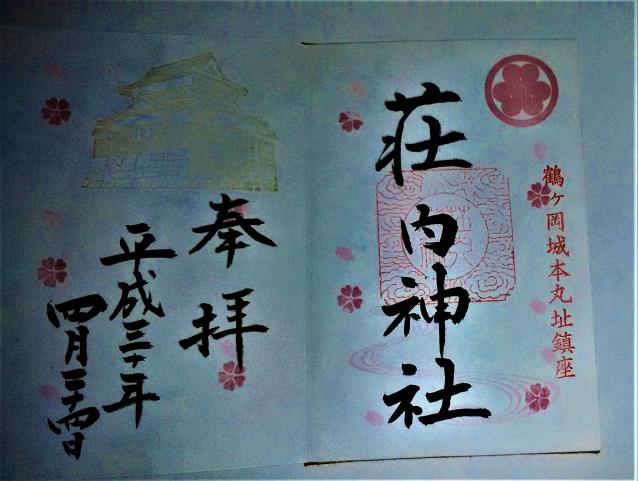 鶴ヶ岡城本丸址鎮座
荘内神社
奉拝
平成三十年
四月二十四日